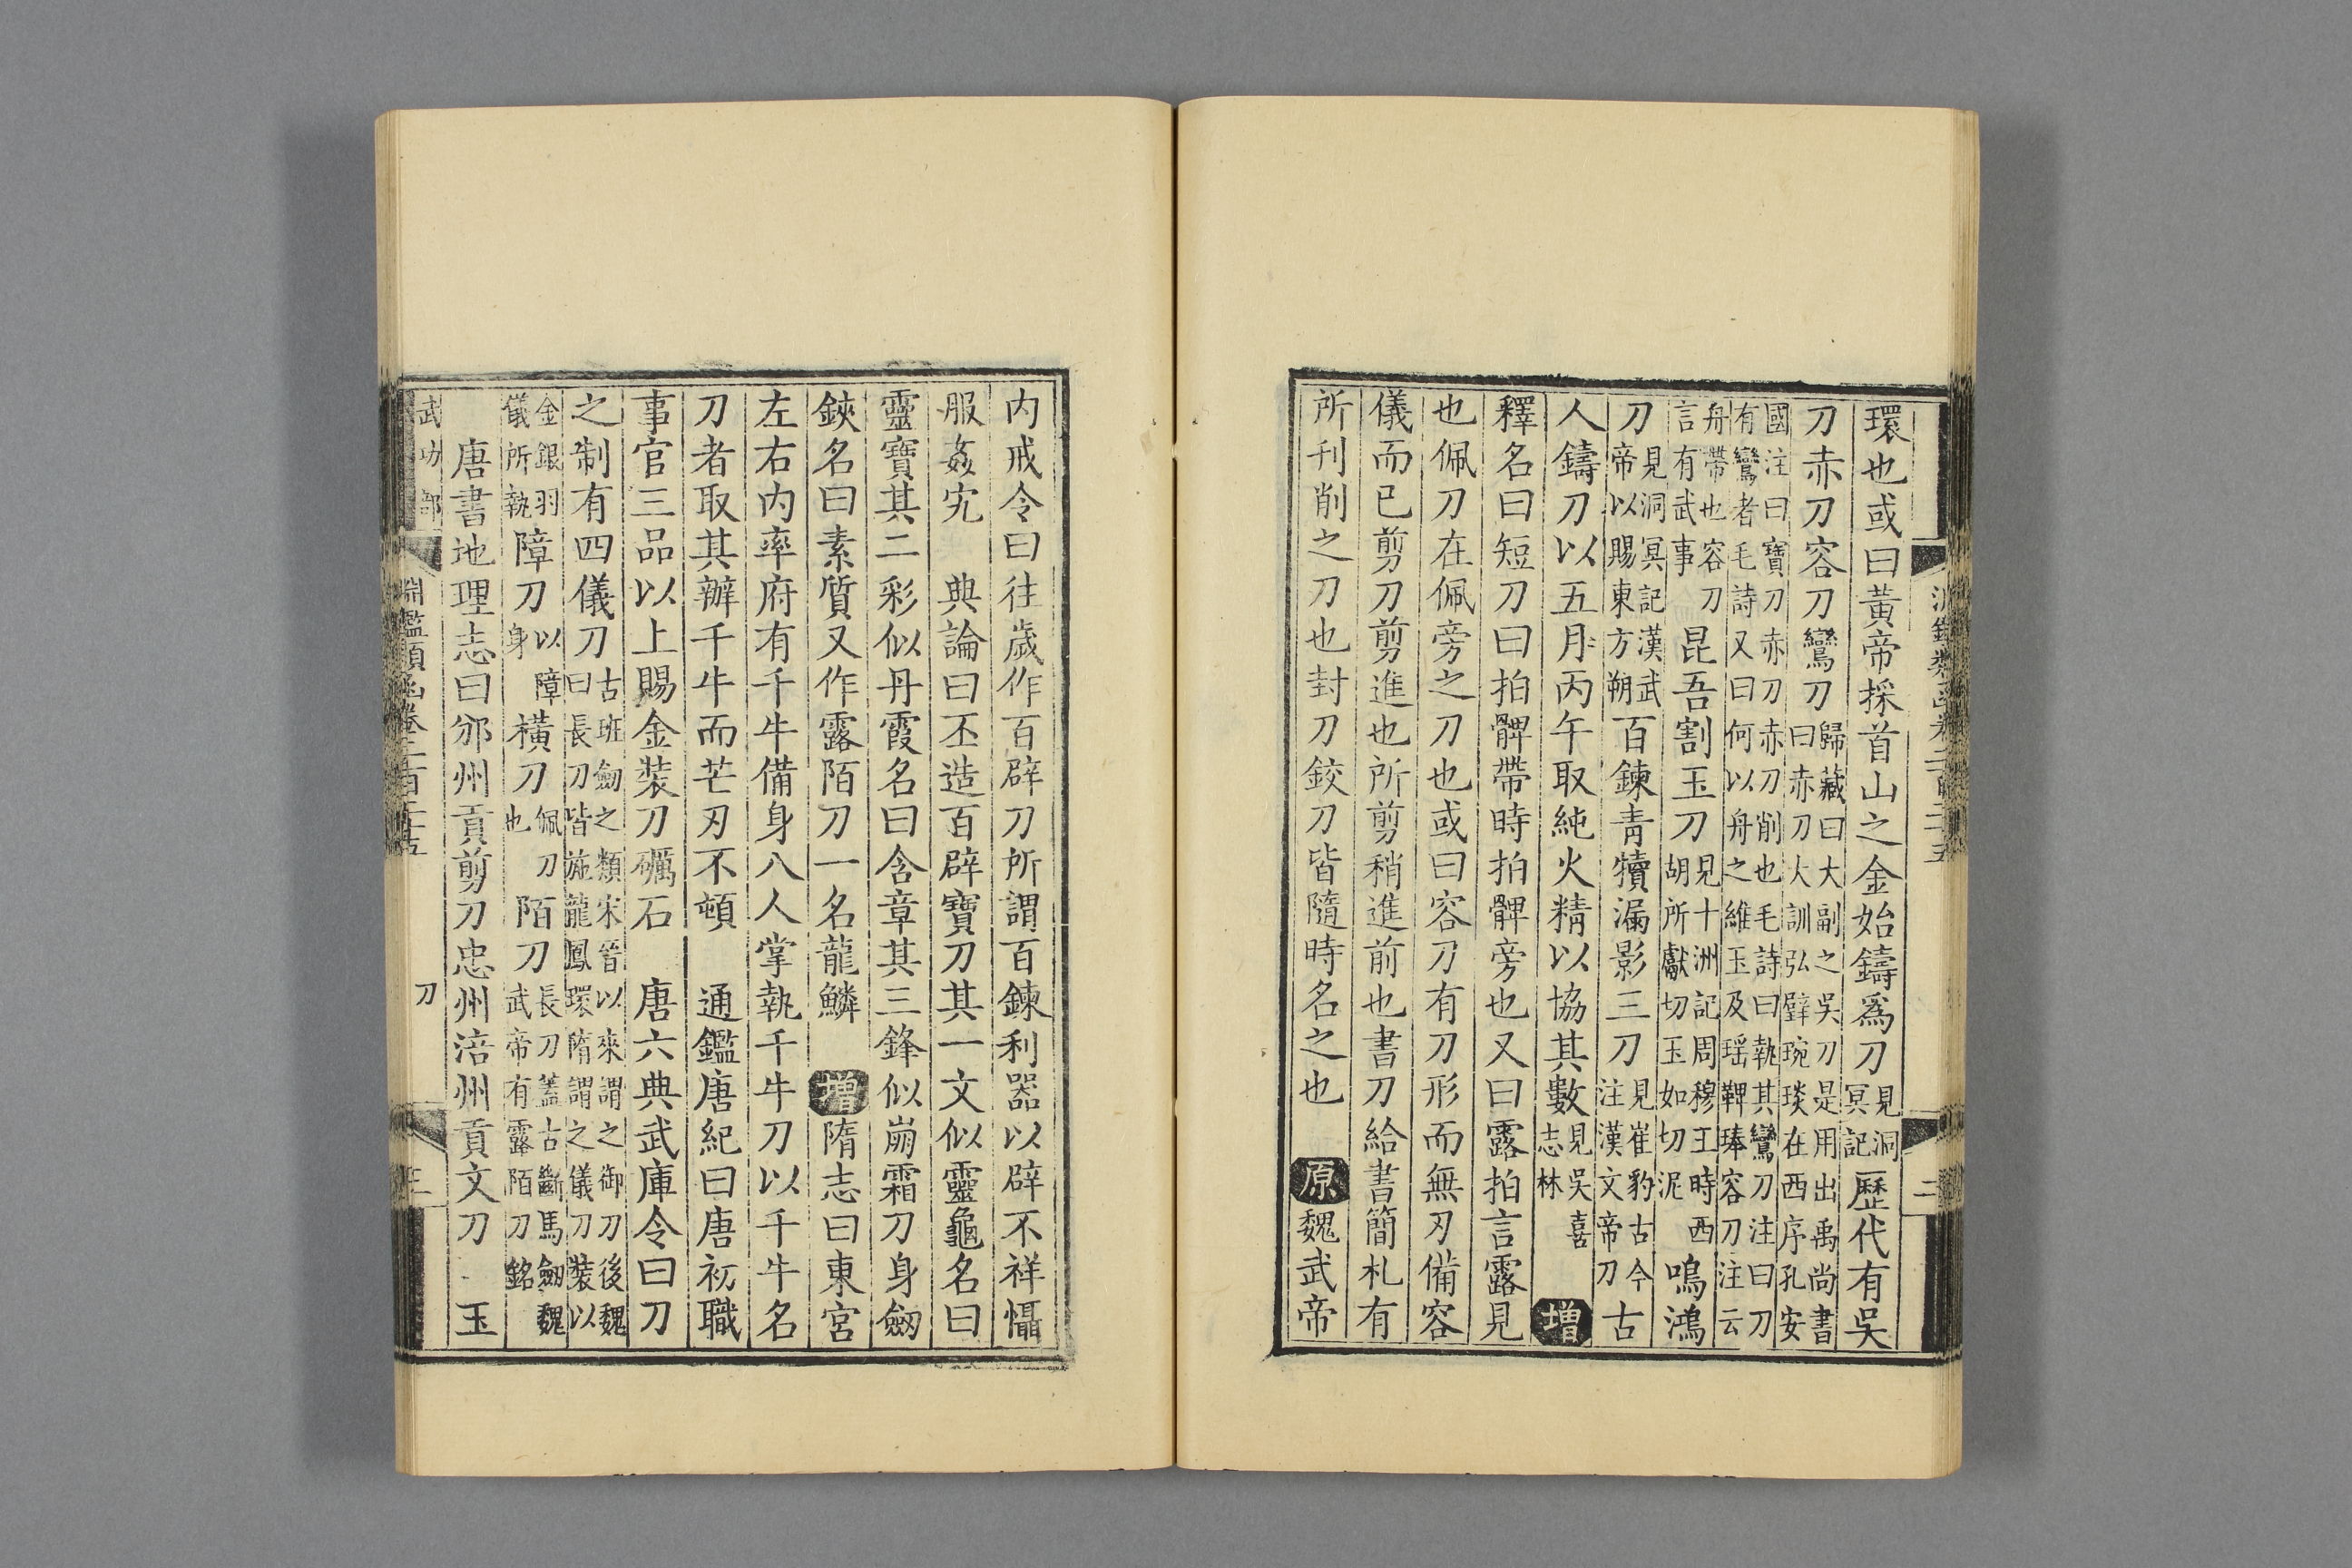 淵鑑類函卷二百二十五 二
環也或曰黃帝採首山之金始鑄爲刀見洞冥記歷代有吳
刀赤刀容刀鸞刀歸藏曰大副之吳刀是用出禹尚書曰赤刀大訓弘璧琬琰在西序孔安
國注曰寶刀赤刀赤刀削也毛詩曰執其鸞刀注曰刀有鸞者毛詩又曰何以舟之維玉及瑤鞞琫容刀注云
舟帶也容刀言有武事昆吾割玉刀見十洲記周穆王時西胡所獻切玉如切泥鳴鴻
刀見洞冥記漢武帝以賜東方朔百鍊青犢漏影三刀見崔豹古今注漢文帝刀古
人鑄刀以五月丙午取純火精以協其數見吳喜志林 增
釋名曰短刀曰拍髀帶時拍髀旁也又曰露拍言露見
也佩刀在佩旁之刀也或曰容刀有刀形而無刃備容
儀而已剪刀剪進也所剪稍進前也書刀給書簡札有
所刊削之刀也封刀鉸刀皆隨時名之也 原魏武帝
內戒令曰往歲作百辟刀所謂百鍊利器以辟不祥懾
服姦宄 典論曰丕造百辟寶刀其一文似靈龜名曰
靈寶其二彩似丹霞名曰含章其三鋒似崩霜刀身劒
鋏名曰素質又作露陌刀一名龍鱗 增隋志曰東宮
左右內率府有千牛備身八人掌執千牛刀以千牛名
刀者取其辦千牛而芒刃不頓 通鑑唐紀曰唐初職
事官三品以上賜金裝刀礪石 唐六典武庫令曰刀
之制有四儀刀古班劒之類宋晉以來謂之御刀後魏曰長刀皆施龍鳳環隋謂之儀刀裝以
金銀羽儀所執障刀以障身橫刀佩刀也陌刀長刀蓋古斷馬劒魏武帝有露陌刀銘
唐書地理志曰邠州貢剪刀忠州涪州貢文刀 玉
武功部 淵鑑類函卷二百二十五 刀 三